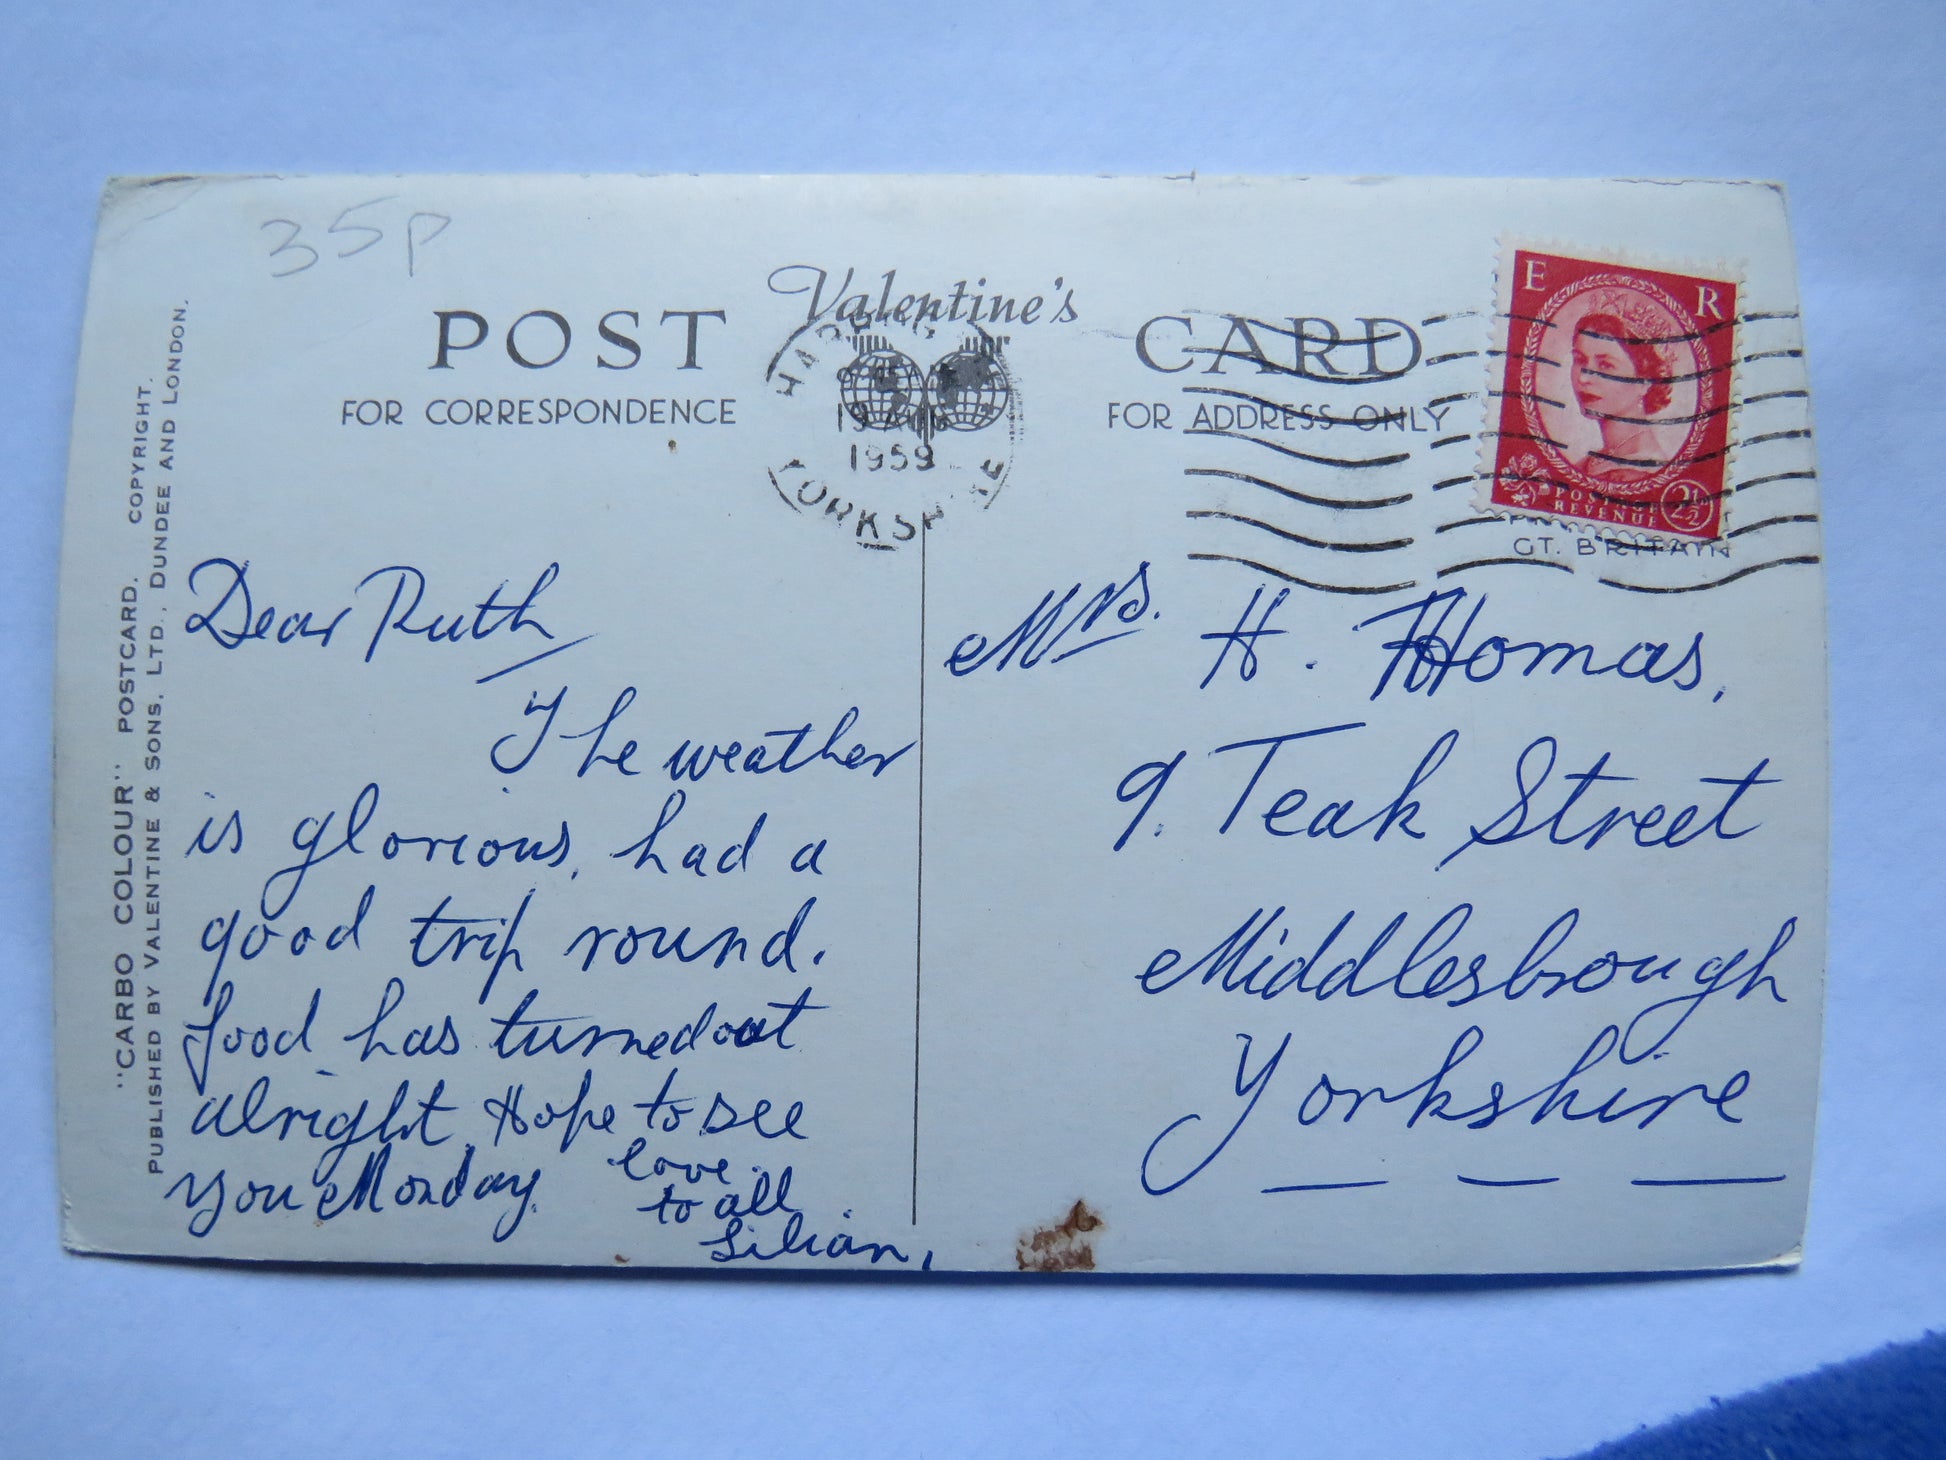 35p
Valentine's
POST
CARD
FOR CORRESPONDENCE
FOR ADDRESS ONLY
19 AUG
1959
YORKSHIRE
E R
POSTAGE
REVENUE
2½
GT. BRITAIN
"CARBO COLOUR" POSTCARD. COPYRIGHT.
PUBLISHED BY VALENTINE & SONS, LTD., DUNDEE AND LONDON.
Dear Ruth
The weather
is glorious, had a
good trip round.
food has turned out
alright. Hope to see
you Monday.
love
to all
Lilian,
Mrs. H. Thomas,
9. Teak Street
Middlesbrough
Yorkshire